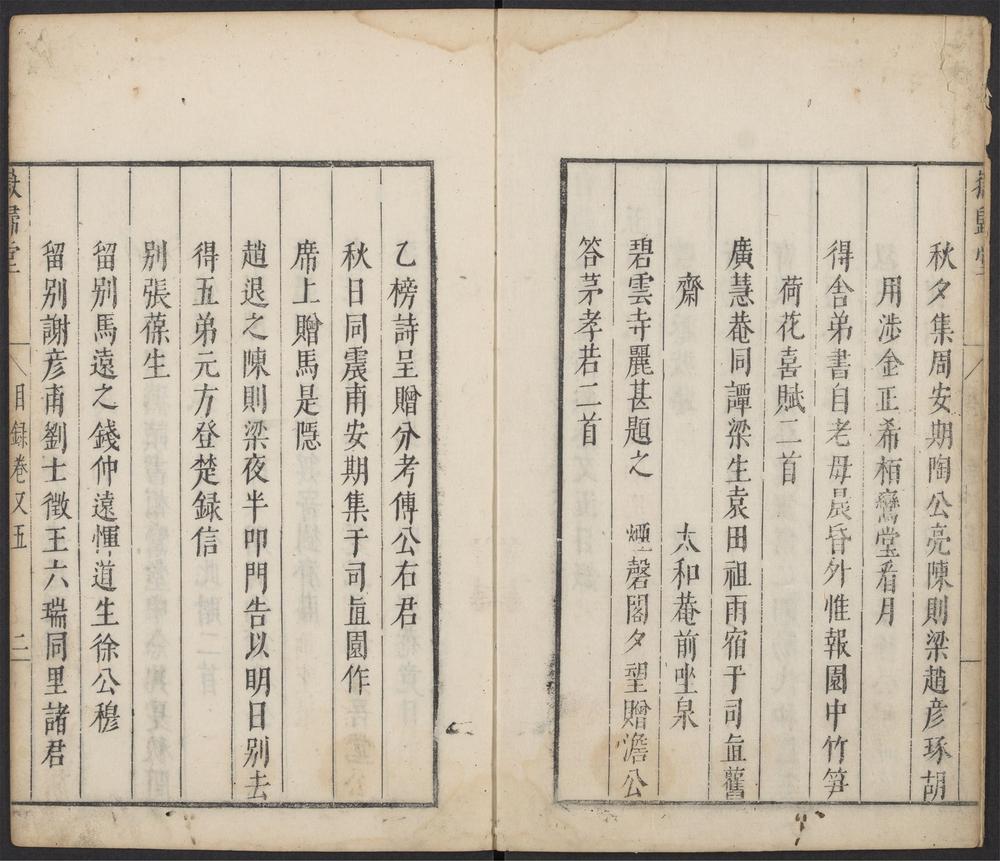 秋夕集周安期陶公亮陳則梁趙彦琢胡
用涉金正希栢鸞堂看月
得舎弟書自老母晨昏外惟報園中竹笋
荷花喜賦二首
廣慧菴同譚梁生袁田祖雨宿于司直舊
齋　太和菴前坐泉
碧雲寺麗甚題之　煙磬閣夕望贈澹公
答茅孝若二首
乙榜詩呈贈分考傅公右君
秋日同震甫安期集于司直園作
席上贈馬是隠
趙退之陳則梁夜半叩門告以明日别去
得五弟元方登楚録信
别張葆生
留别馬遠之錢仲遠惲道生徐公穆
留别謝彦甫劉士徵王六瑞同里諸君
嶽歸堂　目録卷又五　三